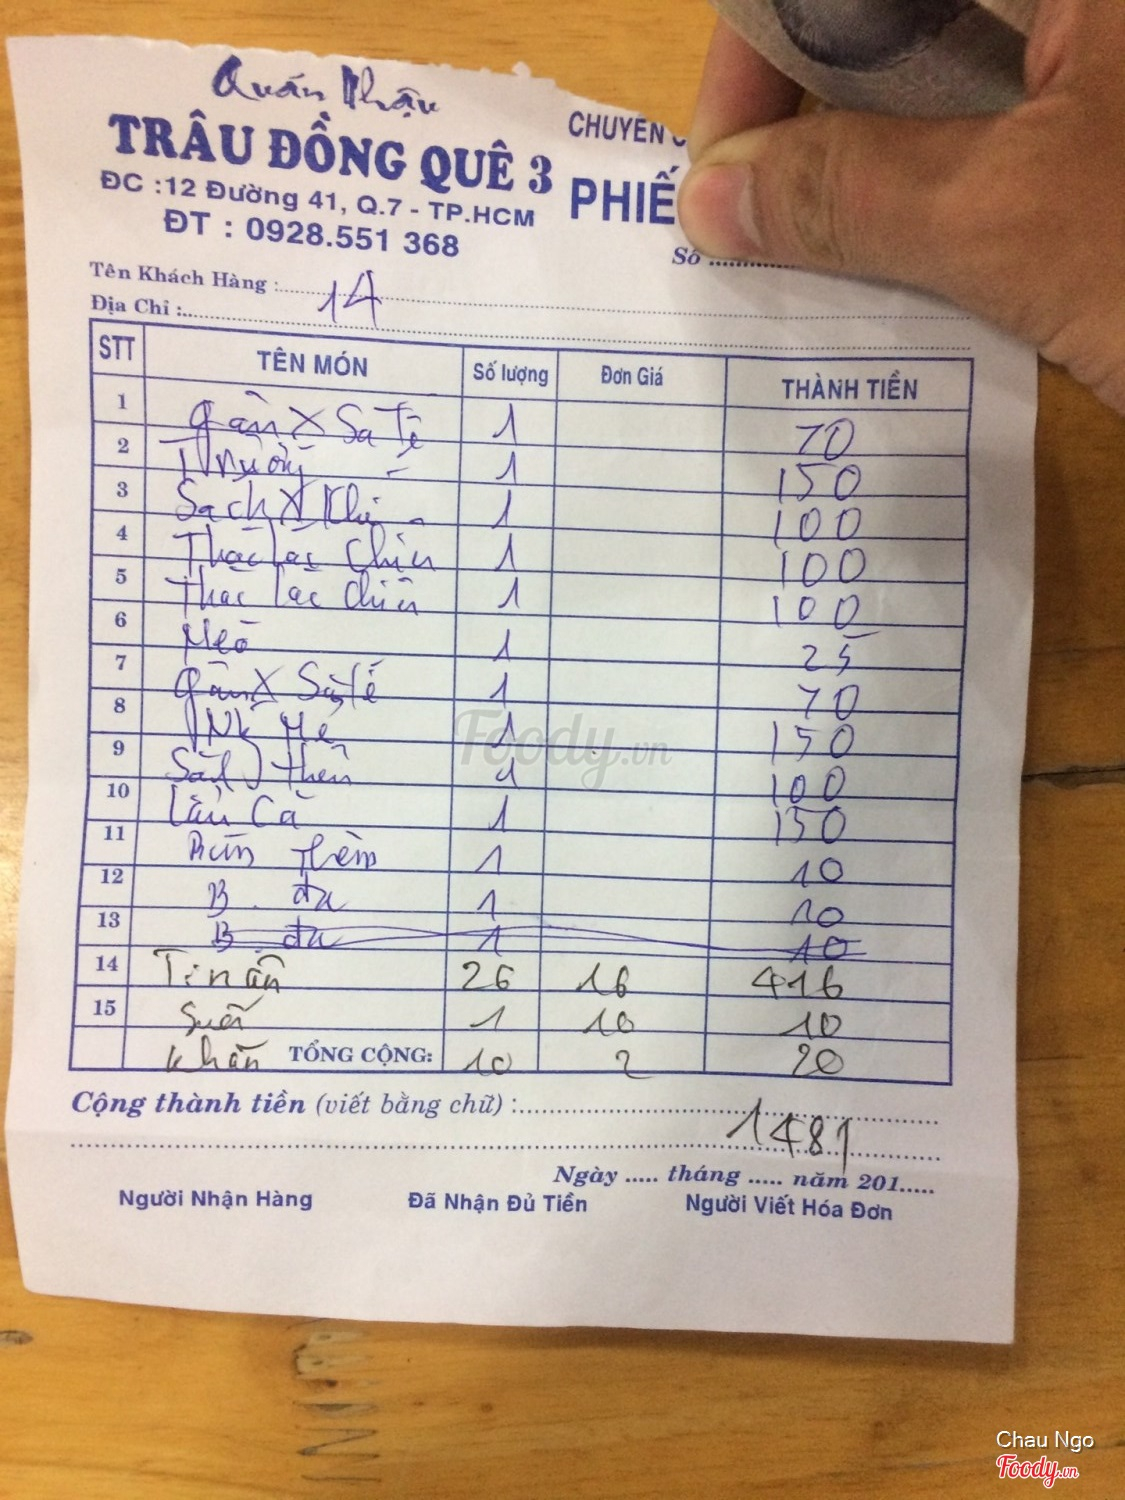 Quán Nhậu
TRÂU ĐỒNG QUÊ 3
ĐC :12 Đường 41, Q.7 - TP.HCM
ĐT : 0928.551 368
CHUYÊN
PHIẾ
Số
Tên Khách Hàng : 14
Địa Chỉ :
STT TÊN MÓN Số lượng Đơn Giá THÀNH TIỀN
1 gân X Sa Tế 1 70
2 1 150
3 Sach X Khế 1 100
4 Thác lác Chiên 1 100
5 Thác lác Chiên 1 100
6 1 25
7 gân X Sa Tế 1 70
8 Me 1 150
9 1 100
10 Lẩu Cá 1 150
11 Bún thêm 1 10
12 B. đa 1 10
13 B đa 1 10
14 26 16 416
15 Suối 1 10 10
Khăn TỔNG CỘNG: 10 2 20
Cộng thành tiền (viết bằng chữ) : 1481
Ngày ..... tháng ..... năm 201.....
Người Nhận Hàng Đã Nhận Đủ Tiền Người Viết Hóa Đơn
Foody.vn
Chau Ngo
Foody.vn